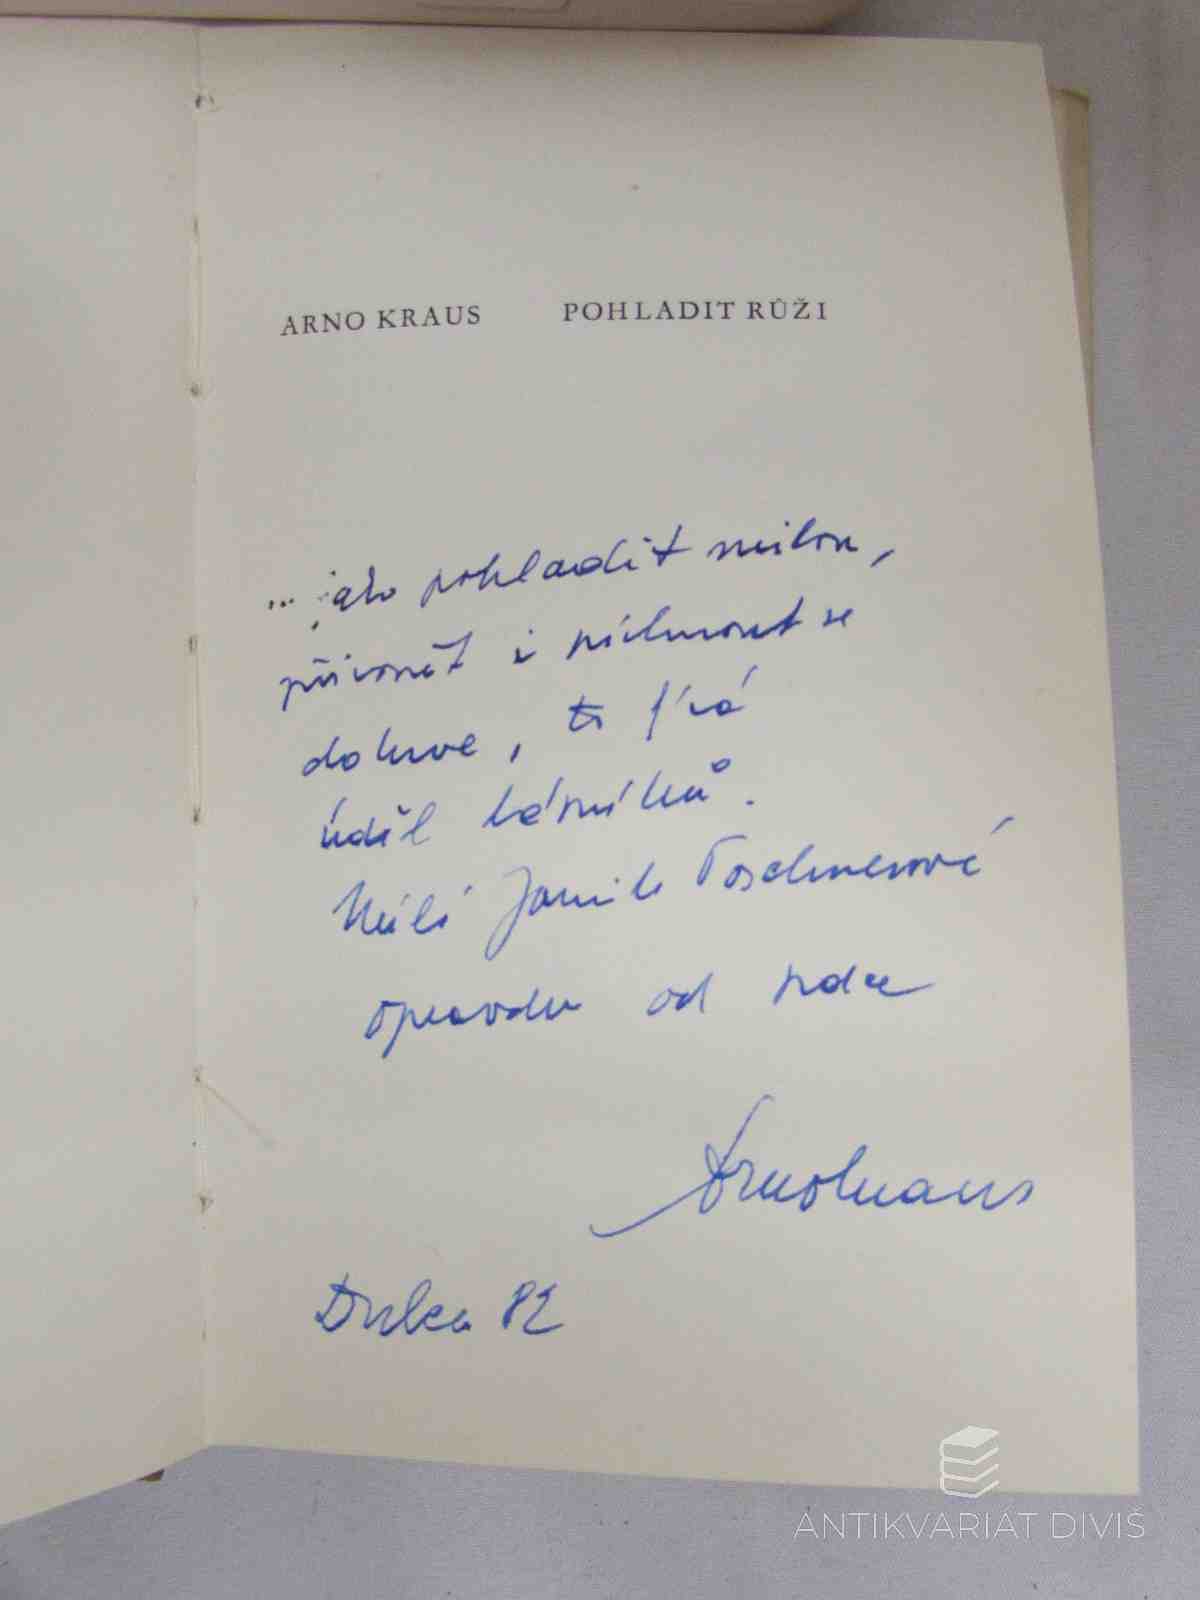 ARNO KRAUS POHLADIT RŮŽI
... jako pohladit milou,
přivonět i píchnout se
do krve, to zbývá
úděl básníků.
Milé Jamile Poschnerové
opravdu od srdce
Arno Kraus
82
ANTIKVARIÁT DIVIŠ